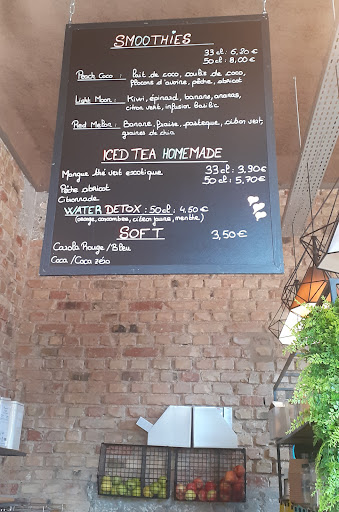 SMOOTHIES
33 cl : 6,20 €
50 cl : 8,00 €
Peach Coco : lait de coco, coulis de coco,
flocons d'avoine, pêche, abricot
Light Moon : Kiwi, épinard, banane, ananas,
citron vert, infusion basilic
Red Melon : Banane, fraise, pastèque, citron vert,
graines de chia
ICED TEA HOMEMADE
Mangue thé vert exotique 33 cl : 3,90 €
Pêche abricot 50 cl : 5,70 €
Citronnade
WATER DETOX : 50 cl : 4,50 €
(orange, concombre, citron jaune, menthe)
SOFT 3,50 €
Caraïb Rouge / Bleu
Coca / Coca zéro